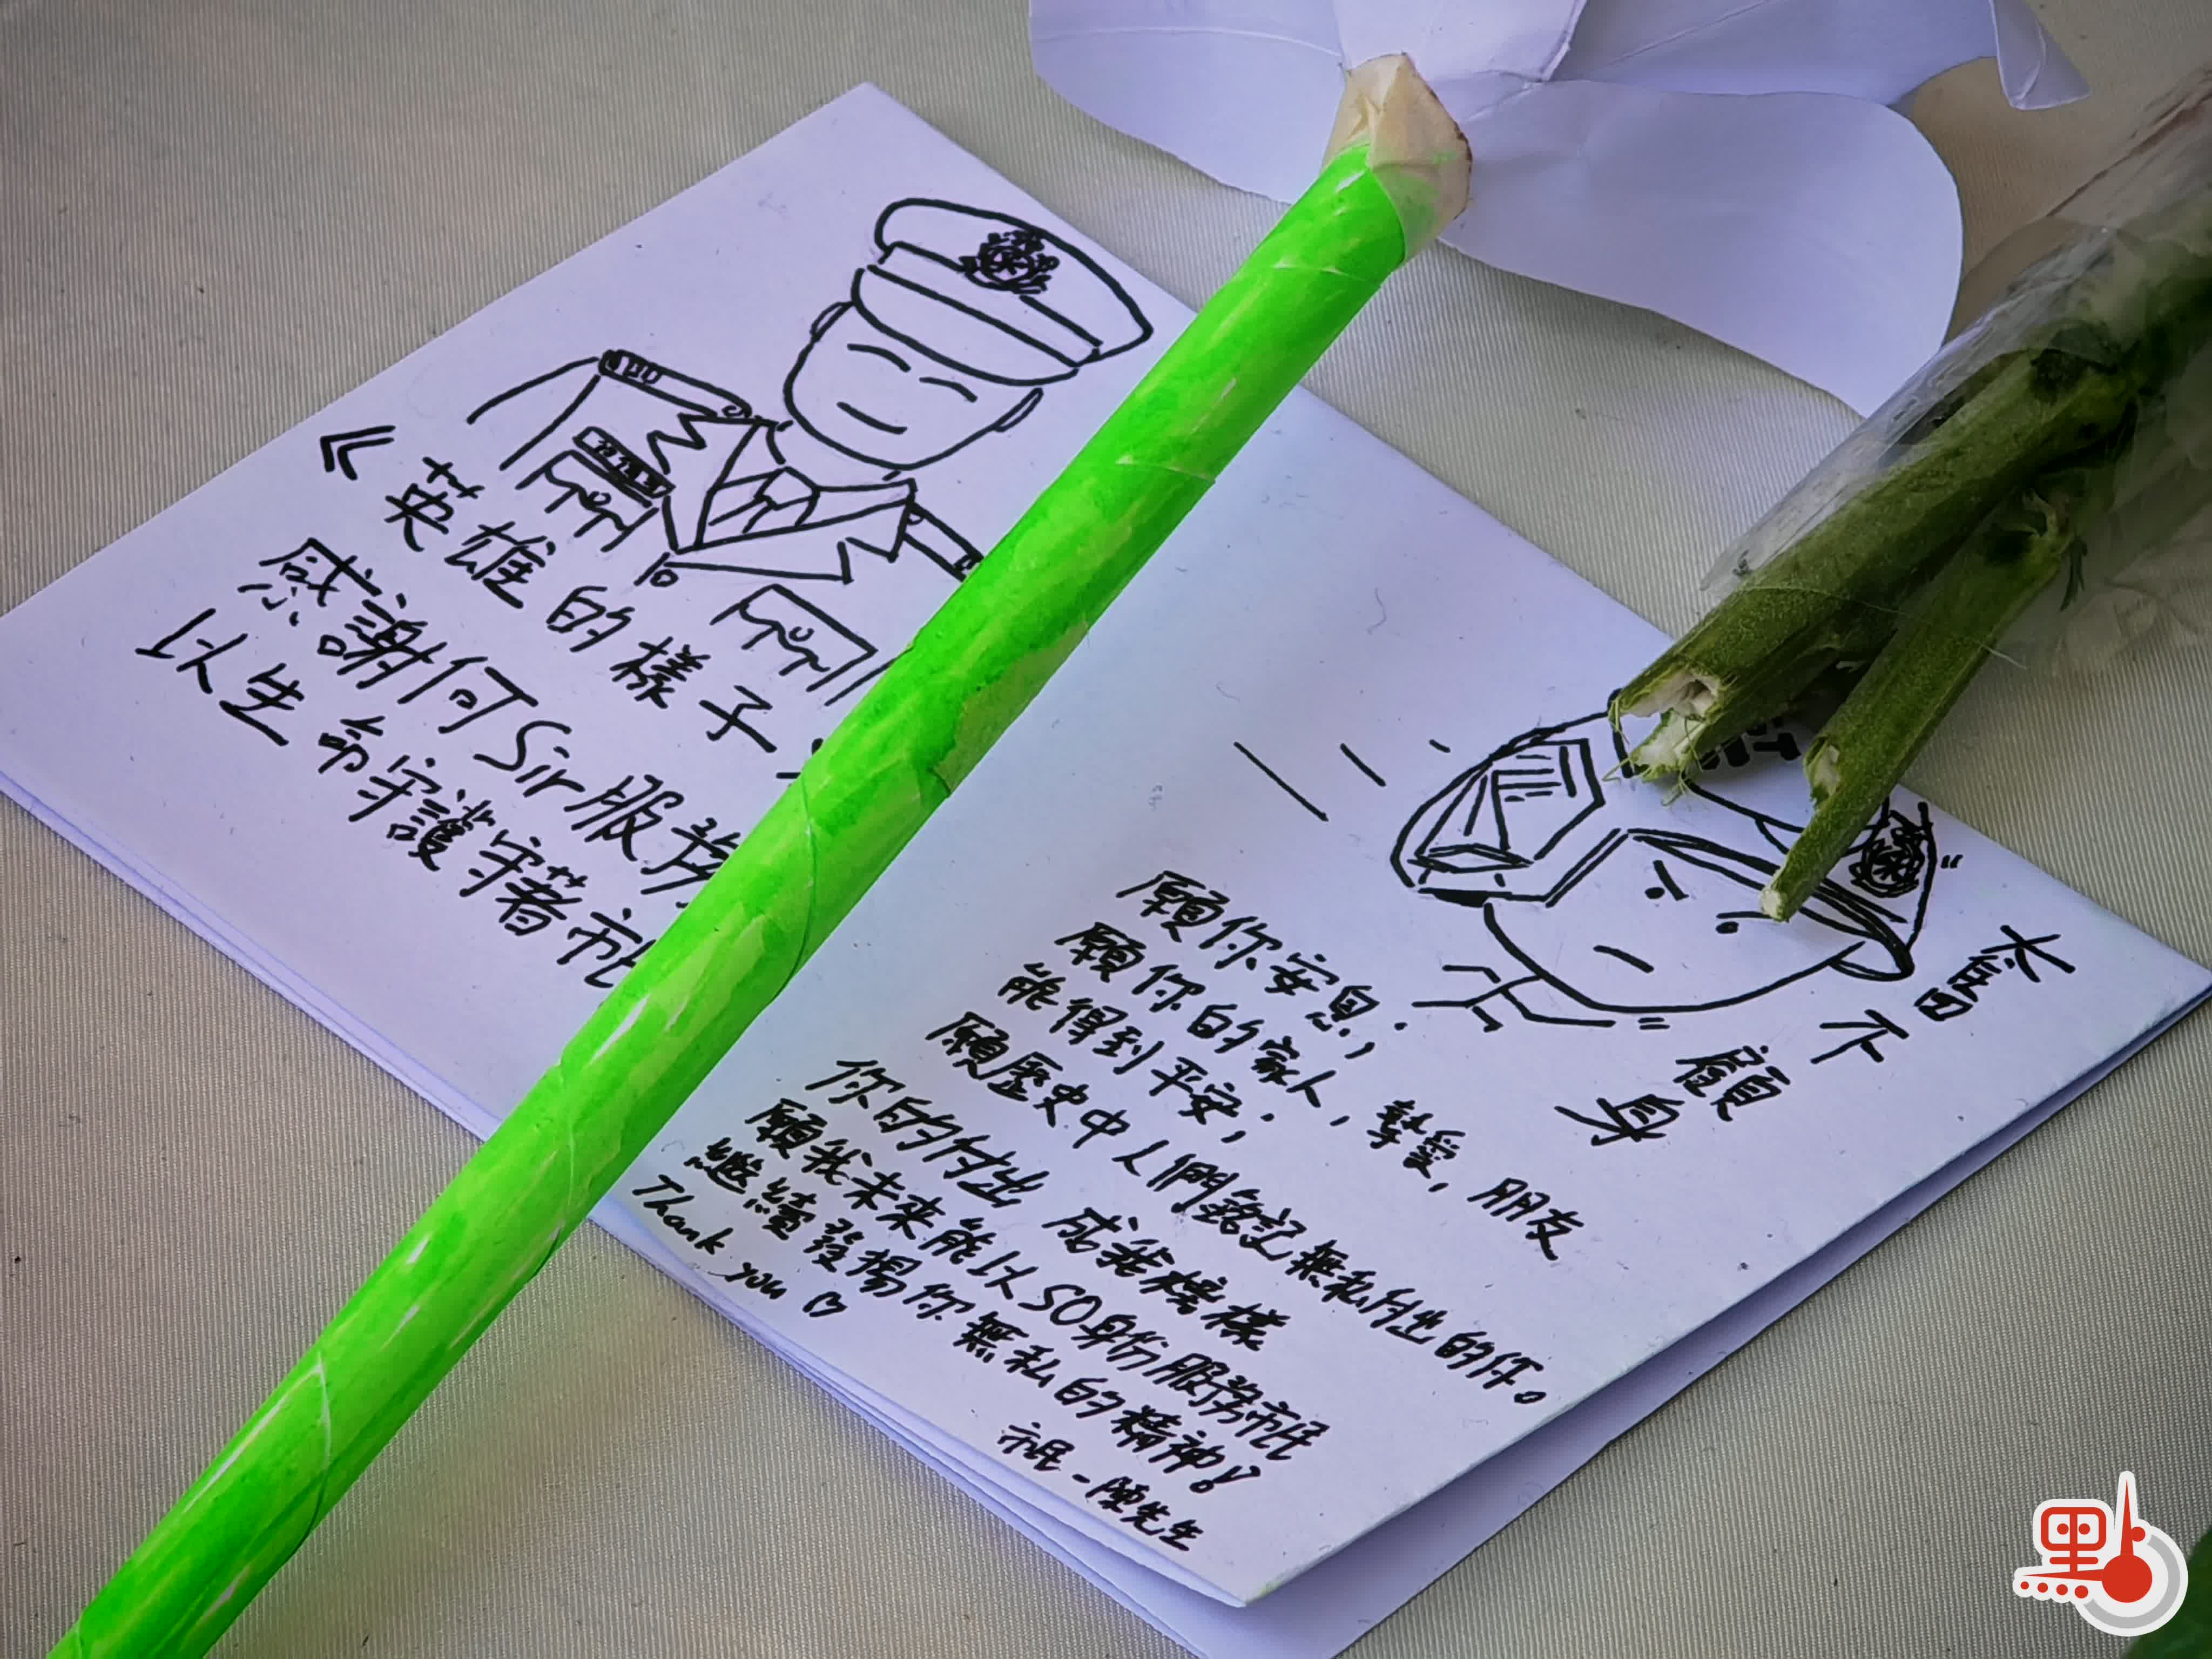 《英雄的樣子
感謝何Sir服務
以生命守護守著市民
奮不顧身
願你安息；
願你的家人，摯愛，朋友
能得到平安；
願歷史中人們銘記無私付出的你。
你的付出 成我榜樣
願我未來能以SO身份服務市民
繼續發揚你無私的精神！
Thank you
市民-陳先生
點